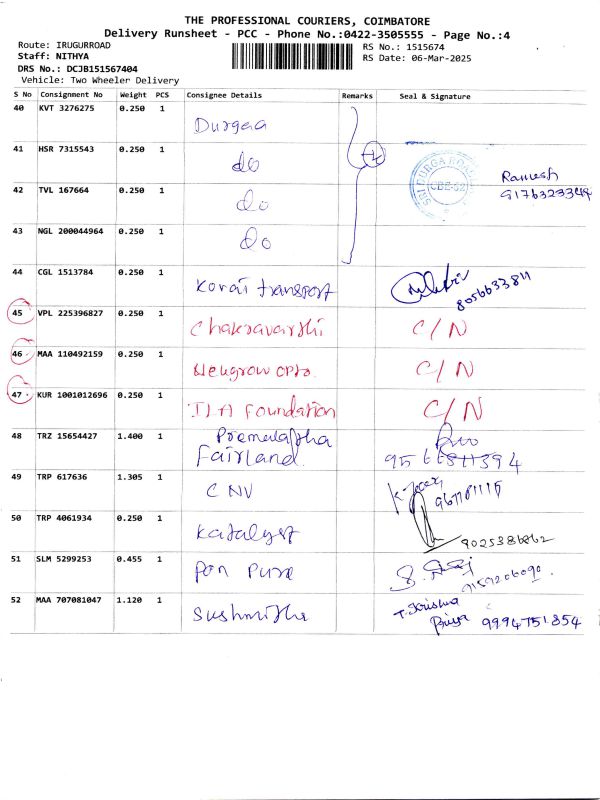 THE PROFESSIONAL COURIERS, COIMBATORE
Delivery Runsheet - PCC - Phone No.:0422-3505555 - Page No.:4
Route: IRUGURROAD
RS No.: 1515674
Staff: NITHYA
RS Date: 06-Mar-2025
DRS No.: DCJB151567404
Vehicle: Two Wheeler Delivery
S No Consignment No Weight PCS Consignee Details Remarks Seal & Signature
40 KVT 3276275 0.250 1 Durgaa
41 HSR 7315543 0.250 1 do
42 TVL 167664 0.250 1 do Ramesh
43 NGL 200044964 0.250 1 do
44 CGL 1513784 0.250 1 Kovai transport 8056633811
45 VPL 225396827 0.250 1 Chakravarthi C/N
46 MAA 110492159 0.250 1 Neugrow opto C/N
47 KUR 1001012696 0.250 1 Foundation C/N
48 TRZ 15654427 1.400 1 Premalatha
Fairland
49 TRP 617636 1.305 1 CNV
50 TRP 4061934 0.250 1 Katalyst
51 SLM 5299253 0.455 1 Pan Pure
52 MAA 707081047 1.120 1 Sushmitha T. Krishna
Priya 9994751854